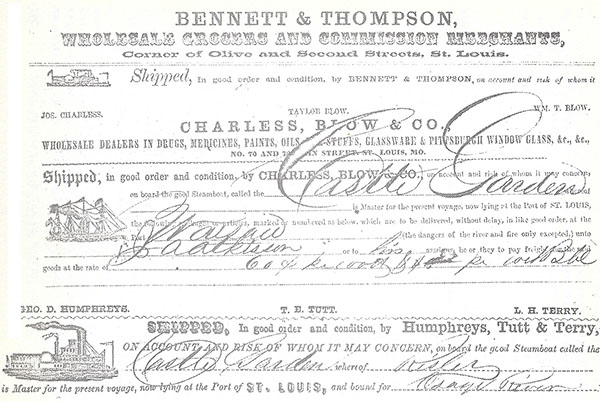 BENNETT & THOMPSON,
WHOLESALE GROCERS AND COMMISSION MERCHANTS,
Corner of Olive and Second Streets, St. Louis.
Shipped, In good order and condition, by BENNETT & THOMPSON, on account and risk of whom it
JOS. CHARLESS. TAYLOR BLOW. WM. T. BLOW.
CHARLESS, BLOW & CO.,
WHOLESALE DEALERS IN DRUGS, MEDICINES, PAINTS, OILS, DYE-STUFFS, GLASSWARE & PITTSBURGH WINDOW GLASS, &c., &c.,
NO. 70 AND MAIN STREET, ST. LOUIS, MO.
Shipped, in good order and condition, by CHARLESS, BLOW & CO., on account and risk of whom it may concern,
on board the good Steamboat, called the Castle Garden
is Master for the present voyage, now lying at the Port of ST. LOUIS,
marked or numbered as below, which are to be delivered, without delay, in like good order, at the
Port Warsaw (the dangers of the river and fire only excepted,) unto
or to his assigns, he or they to pay freight for the said
goods at the rate of
GEO. D. HUMPHREYS. T. E. TUTT. L. H. TERRY.
SHIPPED, In good order and condition, by Humphreys, Tutt & Terry,
ON ACCOUNT AND RISK OF WHOM IT MAY CONCERN, on board the good Steamboat called the
Castle Garden whereof
is Master for the present voyage, now lying at the Port of ST. LOUIS, and bound for Osage River